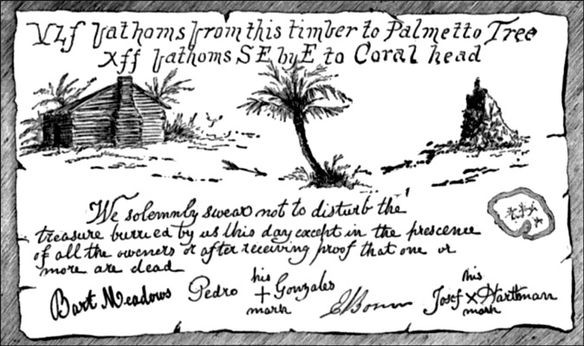 VLf fathoms from this timber to Palmetto Tree
Xff fathoms SE by E to Coral head
We solemnly swear not to disturb the
treasure burried by us this day except in the prescence
of all the owners or after receiving proof that one or
more are dead
Bart Meadows Pedro his + mark Gonzales Josef his x mark Harteman